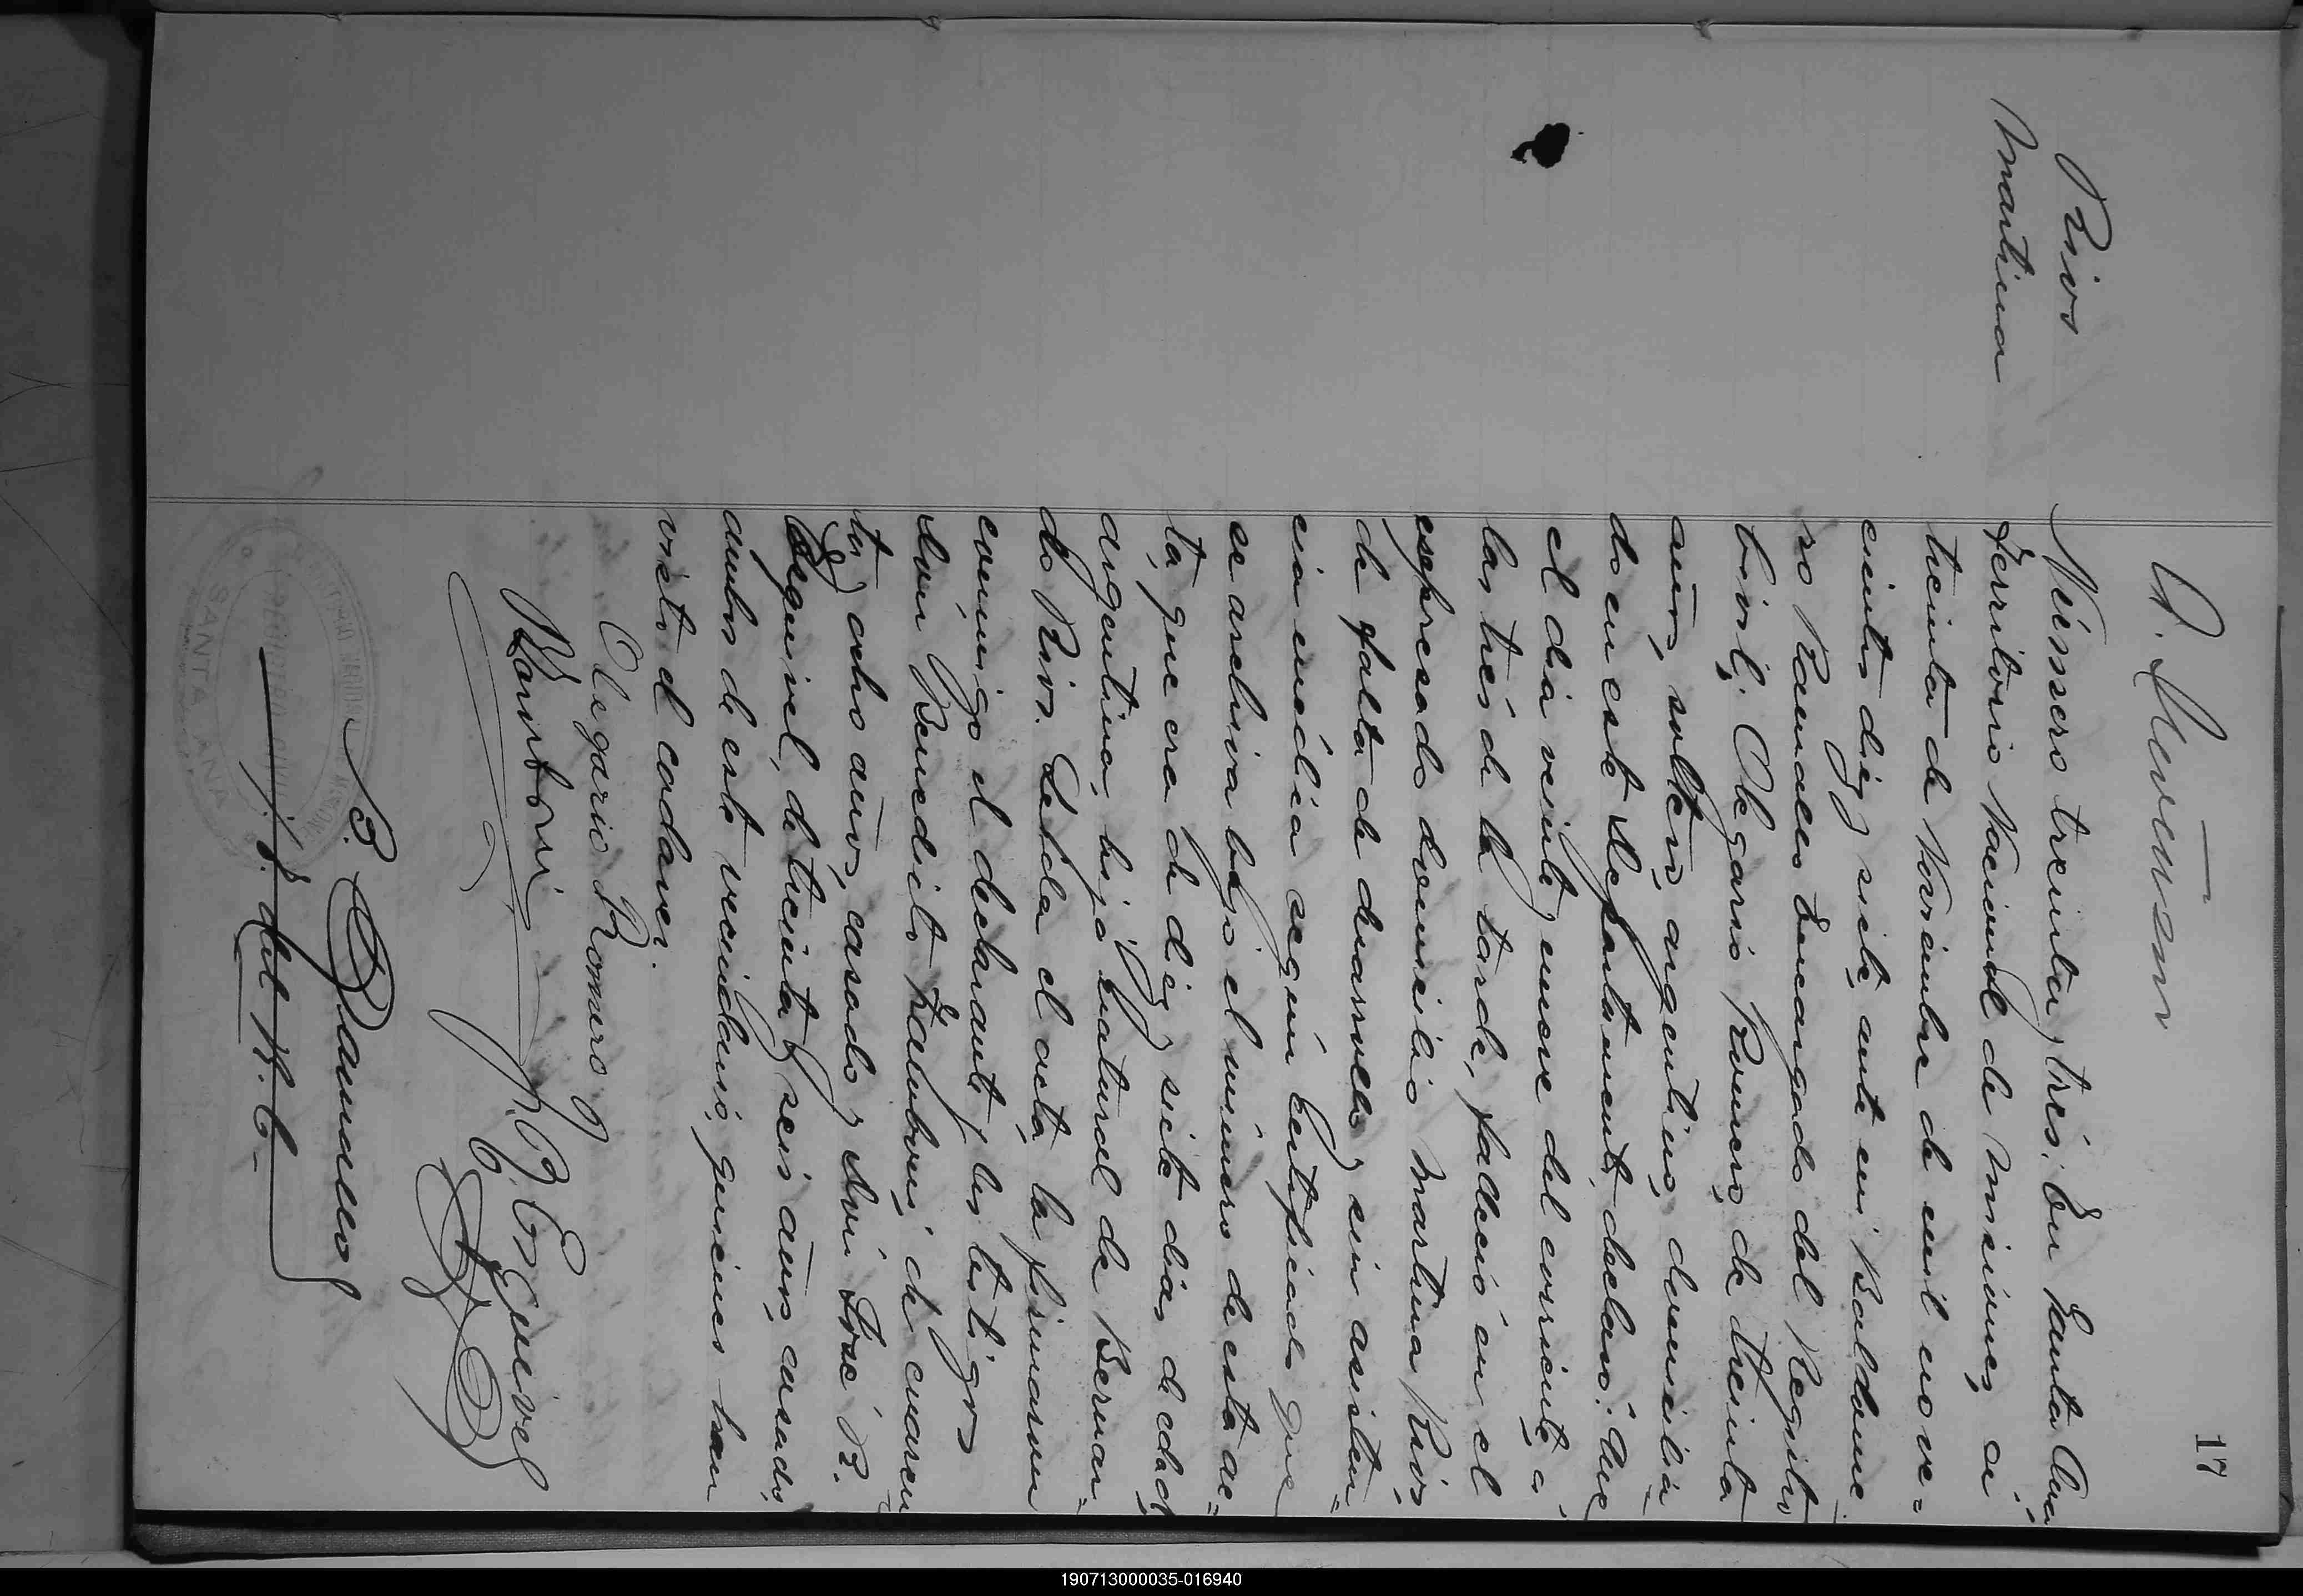 17
Rios
Martina
Número treinta y trés. En Santa Ana,
Territorio Nacional de Misiones, a
treinta de Noviembre de mil nove=
cientos diez y siete, ante mi Baldome
ro Raunales Encargado del Registro
Civil; Olegario Romero, de treinta
años, soltero, argentino, domicilia
do en este departamento, declaró: Que
el dia veinte y nueve del corriente, á
las trés de la tarde, falleció en el
espresado domicilio Martina Rios,
de falta de desarrollo y sin asisten=
cia médica según certificado que
se archiva bajo el número de esta ac=
ta, que era de diez y siete dias de edad,
argentina, hija natural de Bernar=
do Rios. Leida el acta, la firmaron
conmigo el declarante y los testigos
don Benedicto Zamboni, de cuaren
ta y ocho años, casado y don José R.
Esquivel, de treinta y seis años, casado,
ambos de este vecindario, quienes han
visto el cadaver.
Olegario Romero
R. Esquivel
B. Raunales
J. del R. C.
SANTA ANA
190713000035-016940